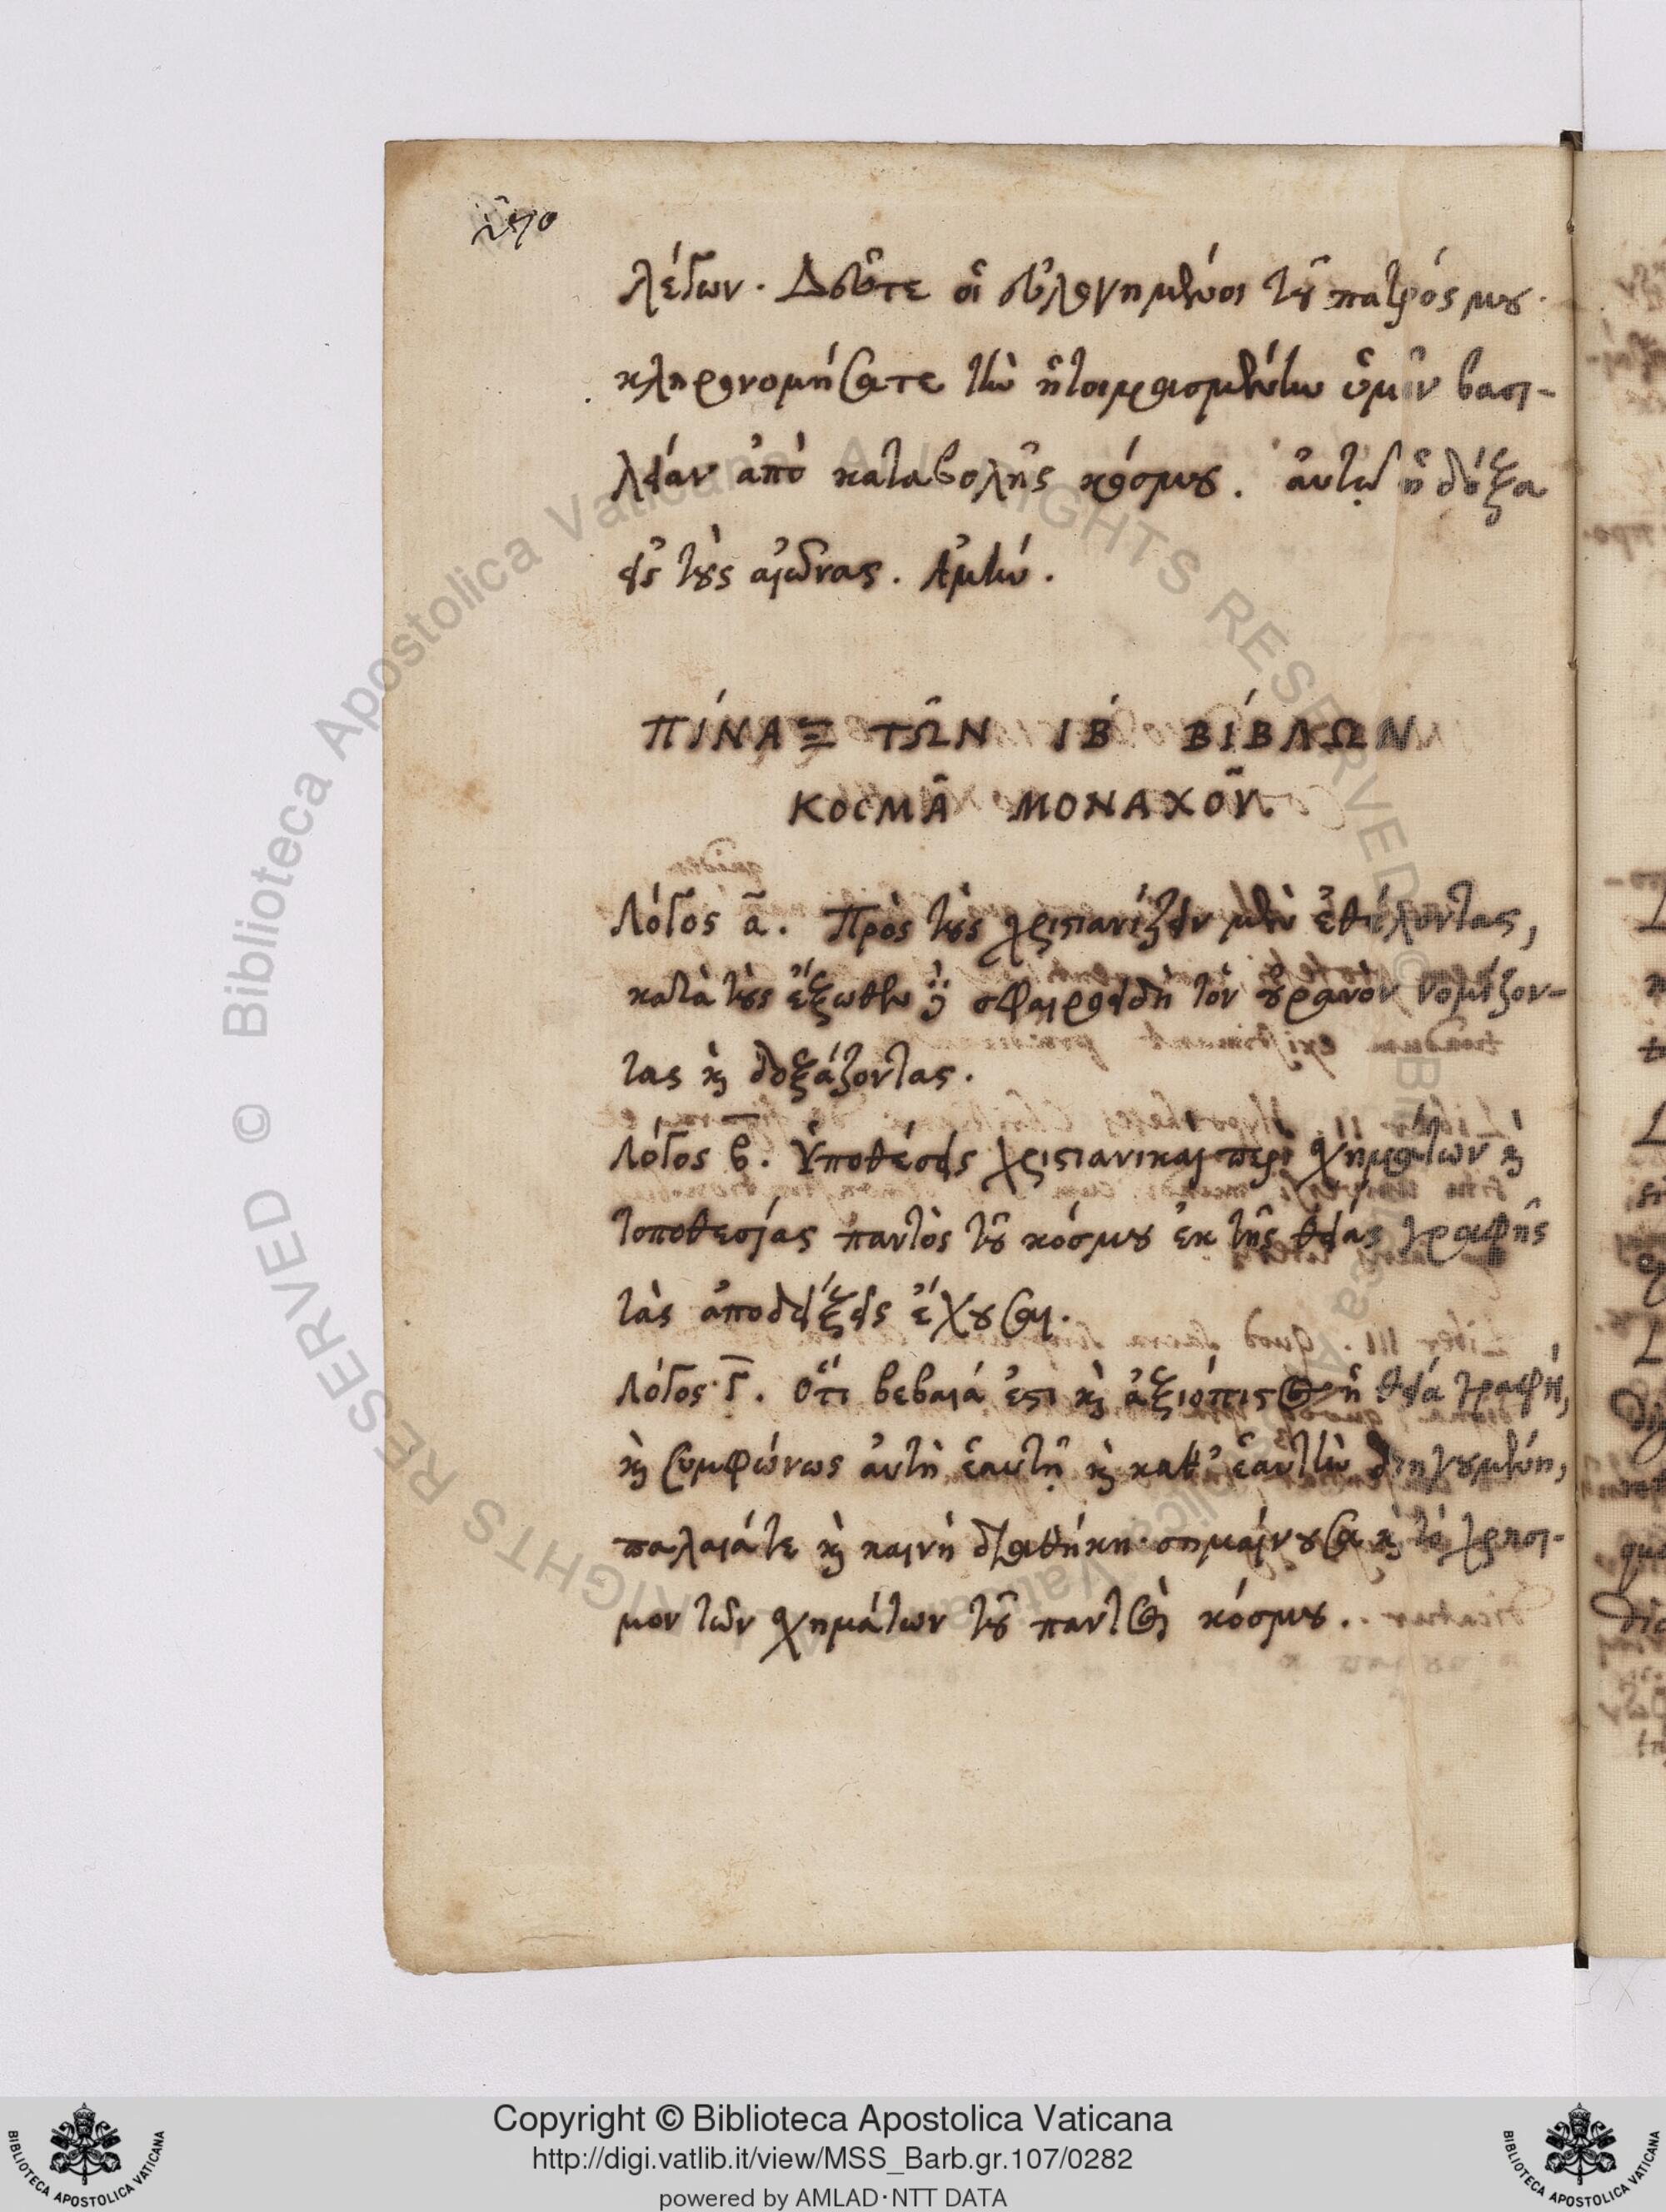 270
λέγων. Δεῦτε οἱ εὐλογημένοι τοῦ πατρός μου.
κληρονομήσατε τὴν ἡτοιμασμένην ὑμῖν βασι-
λείαν ἀπὸ καταβολῆς κόσμου. αὐτῷ ἡ δόξα
εἰς τοὺς αἰῶνας. Ἀμήν.
ΠΊΝΑΞ ΤΩ͂Ν ΙΒ´ ΒΊΒΛΩΝ
ΚΟCΜΑ͂ ΜΟΝΑΧΟΥ͂.
Λόγος α̃. Πρὸς τοὺς χριστιανίζειν μὲν ἐθέλοντας,
κατὰ τοὺς ἔξωθεν σφαιροειδῆ τὸν οὐρανὸν νομίζον-
τας καὶ δοξάζοντας.
Λόγος β̅. Ὑποθέσεις χριστιανικαὶ περὶ σχημάτων καὶ
τοποθεσίας παντὸς τοῦ κόσμου ἐκ τῆς θείας γραφῆς
τὰς ἀποδείξεις ἔχουσαι.
Λόγος γ̅. Ὅτι βεβαιά ἐστι καὶ ἀξιόπιστος ἡ θεία γραφή,
καὶ συμφώνως αὐτὴ ἑαυτῇ καὶ καθ' ἑαυτὴν διηγουμένη,
παλαιά τε καὶ καινὴ διαθήκη. σημαίνουσα καὶ τὸ χρήσι-
μον τῶν σχημάτων τοῦ παντὸς κόσμου.
Copyright © Biblioteca Apostolica Vaticana
http://digi.vatlib.it/view/MSS_Barb.gr.107/0282
powered by AMLAD·NTT DATA
BIBLIOTECA APOSTOLICA VATICANA
BIBLIOTECA APOSTOLICA VATICANA